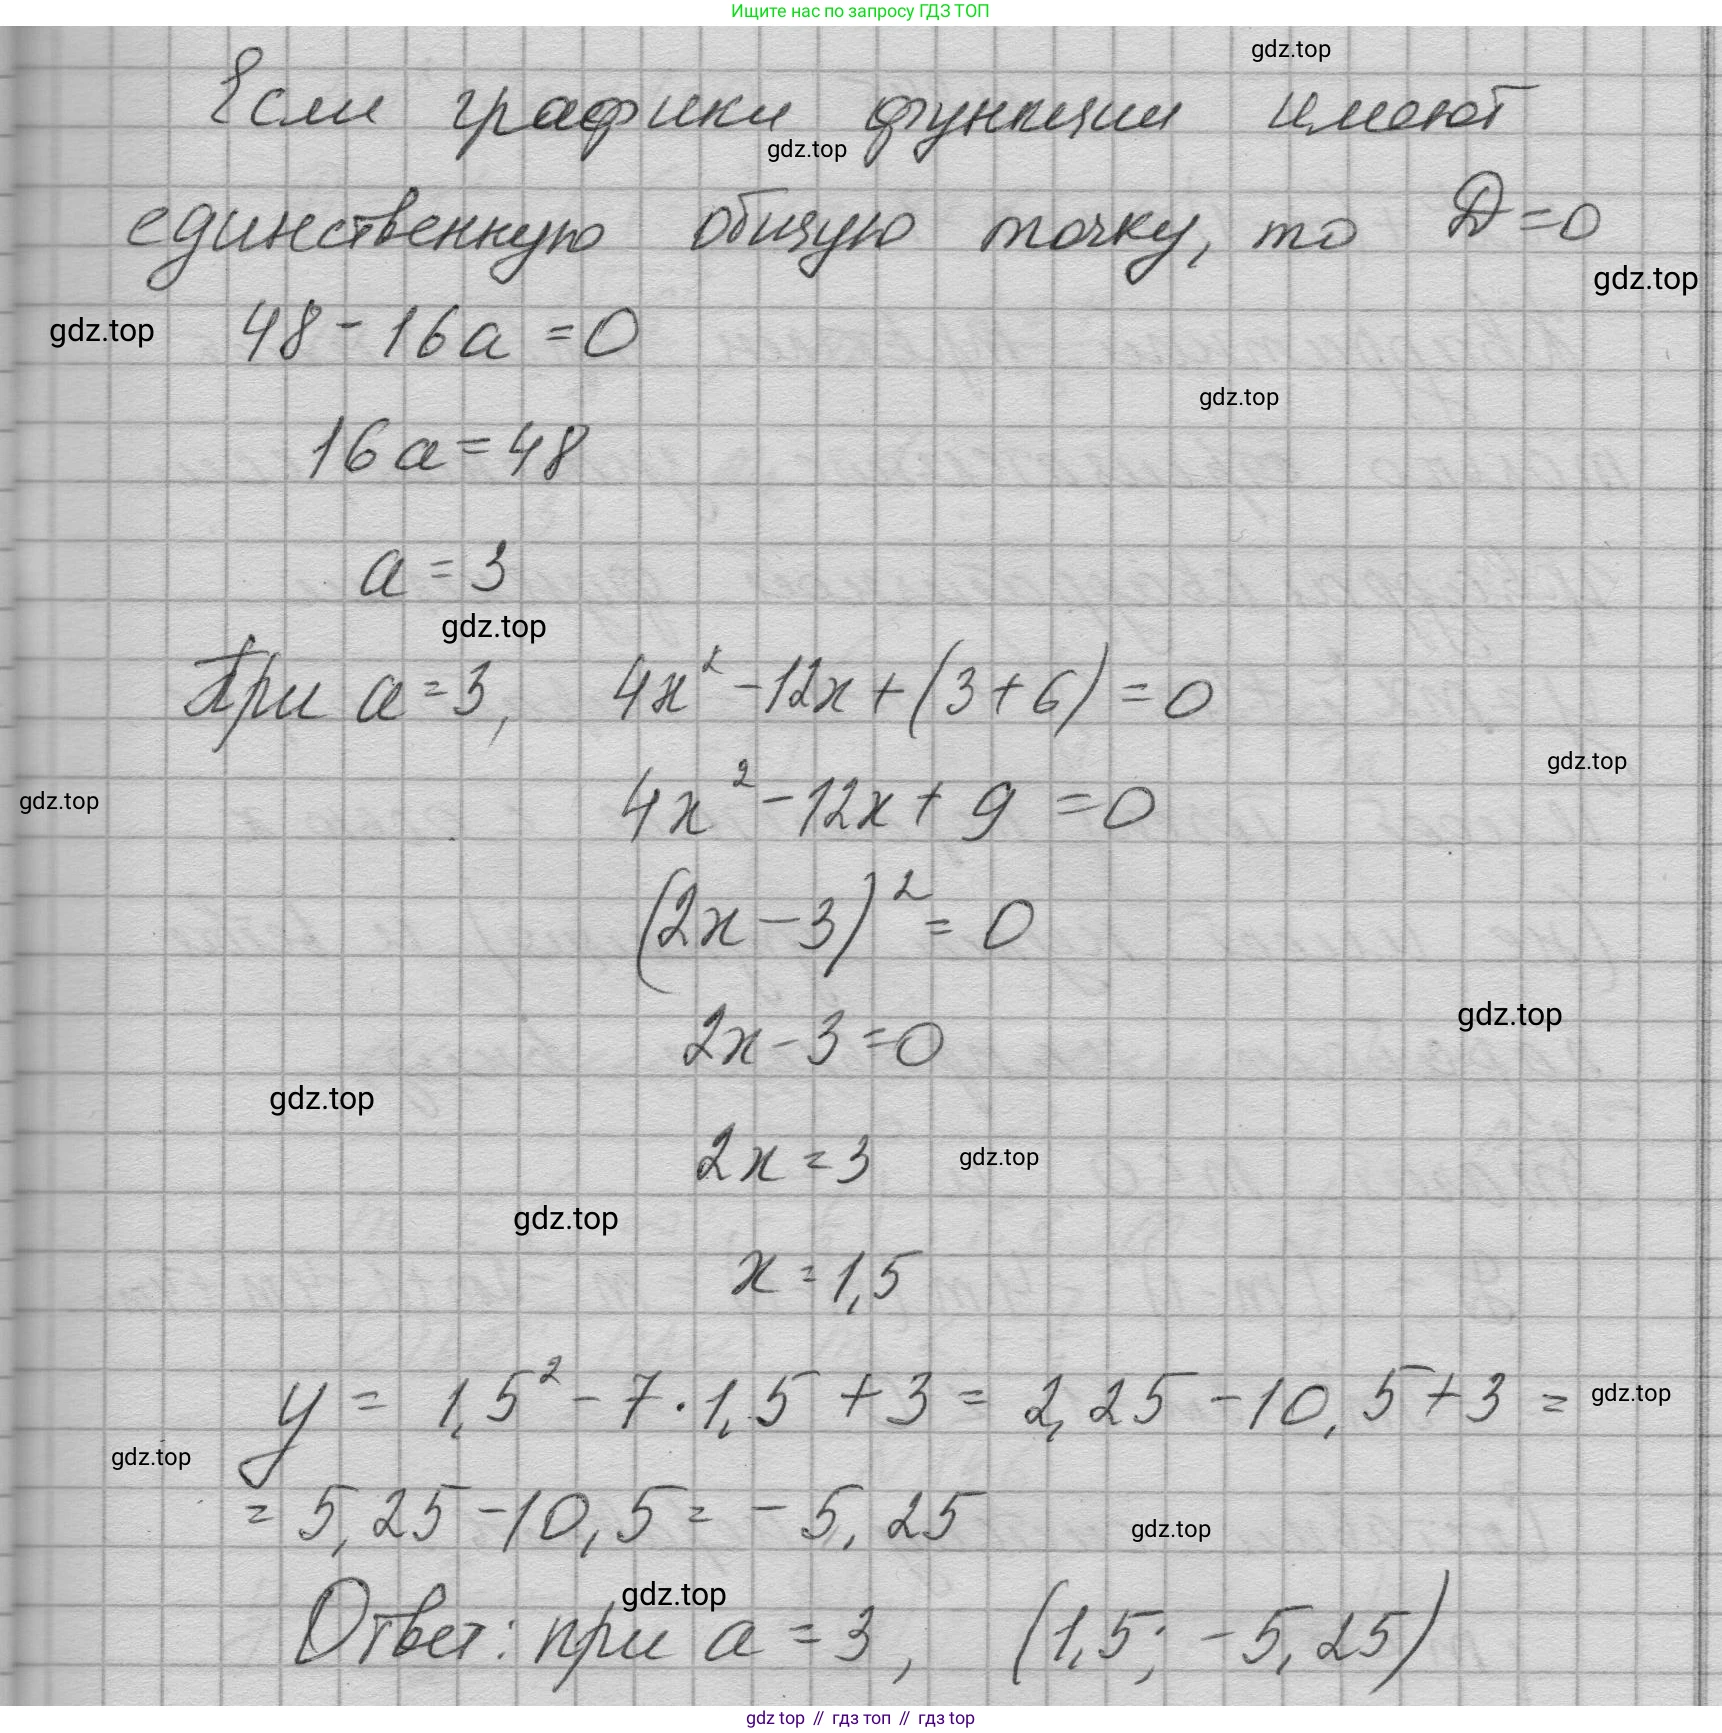 Ищите нас по запросу ГДЗ ТОП
gdz.top
Если графики функции имеют
gdz.top
единственную общую точку, то D=0
gdz.top
gdz.top 48-16a=0
gdz.top
16a=48
a=3
gdz.top
При a=3, 4x²-12x+(3+6)=0
gdz.top
gdz.top 4x²-12x+9=0
(2x-3)²=0
gdz.top
2x-3=0
gdz.top
2x=3 gdz.top
gdz.top
x=1,5
y=1,5²-7·1,5+3=2,25-10,5+3= gdz.top
gdz.top
=5,25-10,5=-5,25
gdz.top
gdz.top
Ответ: при a=3, (1,5; -5,25)
gdz top // гдз топ // гдз top